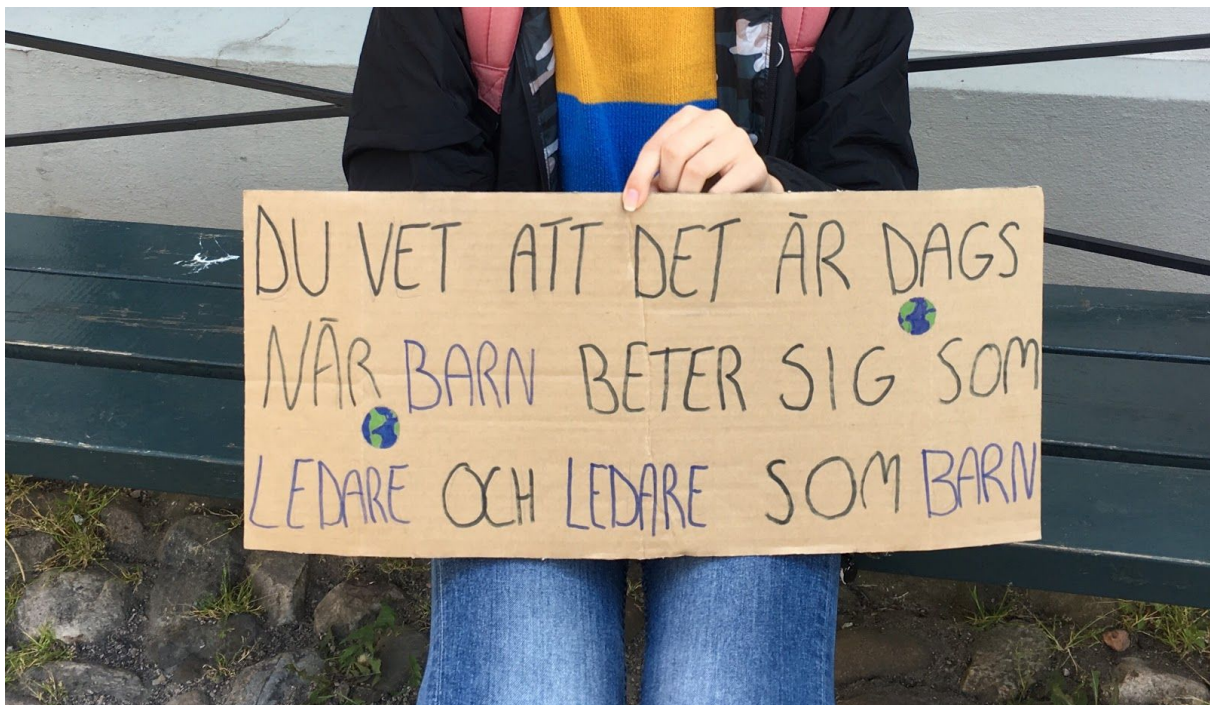 DU VET ATT DET ÄR DAGS
NÄR BARN BETER SIG SOM
LEDARE OCH LEDARE SOM BARN